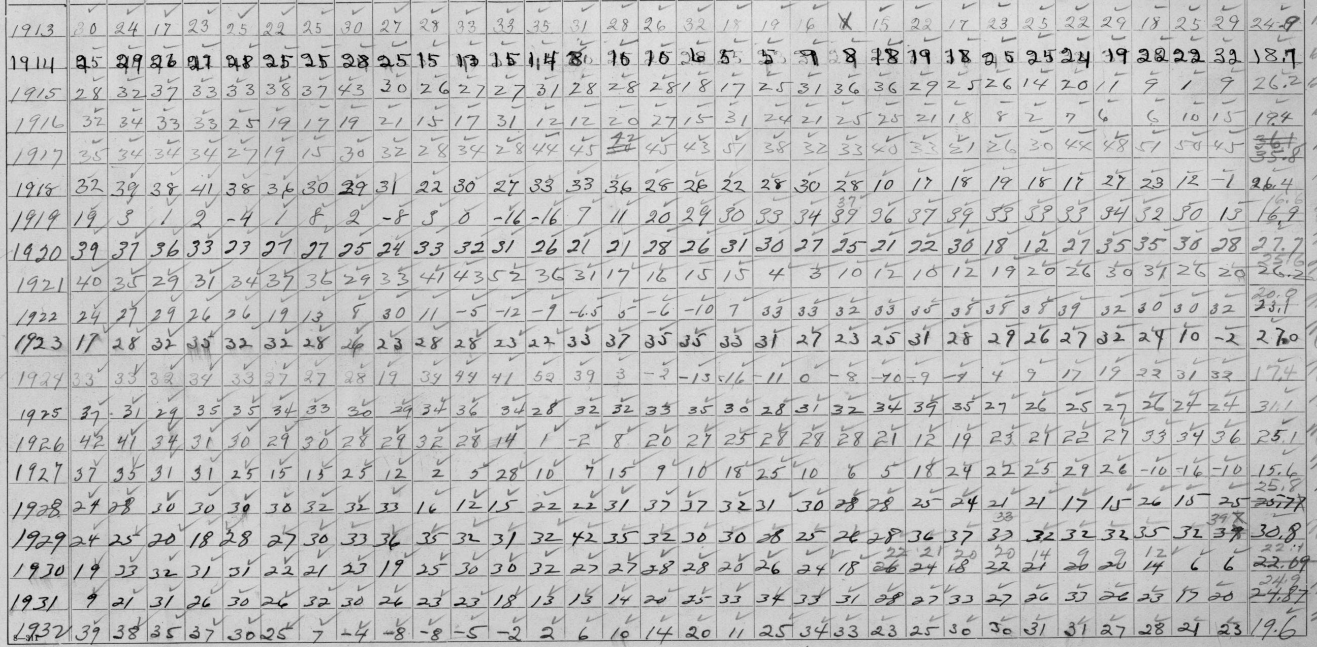 1913 30 24 17 23 25 22 25 30 27 28 33 33 35 31 28 26 32 18 19 16 X 15 22 17 23 25 22 29 18 25 29 24.9
1914 25 29 26 27 28 25 25 28 25 15 13 15 14 8 10 10 6 5 5 9 8 18 19 18 25 25 24 19 22 22 32 18.7
1915 28 32 37 33 33 38 37 43 30 26 27 27 31 28 28 28 18 17 25 31 36 36 29 25 26 14 20 11 9 1 9 26.2
1916 32 34 33 33 25 19 17 19 21 15 17 31 12 12 20 27 15 31 24 21 25 25 21 18 8 2 7 6 6 10 15 19.4
1917 35 34 34 34 27 19 15 30 32 28 34 28 44 45 42 45 43 51 38 32 33 40 33 21 26 30 44 48 51 50 45 36.1 35.8
1918 32 39 38 41 38 36 30 29 31 22 30 27 33 33 36 28 26 22 28 30 28 10 17 18 19 18 17 27 23 12 -1 26.4
1919 19 3 1 2 -4 1 8 2 -8 3 0 -16 -16 7 11 20 29 30 33 34 37 39 36 37 39 33 33 33 34 32 30 13 16.6 16.9
1920 39 37 36 33 23 27 27 25 24 33 32 31 26 21 21 28 26 31 30 27 25 21 22 30 18 12 27 35 35 30 28 27.7
1921 40 35 29 31 34 37 36 29 33 41 43 52 36 31 17 16 15 15 4 3 10 12 10 12 19 20 26 30 37 26 20 25.6 26.2
1922 24 27 29 26 26 19 13 8 30 11 -5 -12 -9 -6.5 5 -6 -10 7 33 33 32 33 35 38 38 38 39 32 30 30 32 20.0 23.1
1923 17 28 32 35 32 32 28 26 23 28 28 23 22 33 37 35 35 33 31 27 23 25 31 28 29 26 27 32 24 10 -2 27.0
1924 33 33 32 34 33 27 27 28 19 34 44 41 52 39 3 -2 -13 -16 -11 0 -8 -10 -9 -4 4 9 17 19 22 31 32 17.4
1925 37 31 29 35 35 34 33 30 29 34 36 34 28 32 32 33 35 30 28 31 32 34 39 35 27 26 25 27 26 24 24 31.1
1926 42 41 34 31 30 29 30 28 29 32 28 14 1 -2 8 20 27 25 28 28 28 21 12 19 23 21 22 27 33 34 36 25.1
1927 37 35 31 31 25 15 15 25 12 2 5 28 10 7 15 9 10 18 25 10 6 5 18 24 22 25 29 26 -10 -16 -10 15.6
1928 24 28 30 30 30 30 32 32 33 16 12 15 22 22 31 37 37 32 31 30 28 28 25 24 21 21 17 15 26 15 25 25.8 25.77
1929 24 25 20 18 28 27 30 33 36 35 32 31 32 42 35 32 30 30 28 25 26 28 36 37 33 32 32 32 35 32 39 30.8
1930 19 33 32 31 31 22 21 23 19 25 30 30 32 27 27 28 28 20 26 24 18 22 26 21 24 20 18 20 22 14 21 9 20 9 20 12 14 6 6 22.09
1931 9 21 31 26 30 26 32 30 26 23 23 18 13 13 14 20 25 33 34 33 31 28 27 33 27 26 33 26 23 17 20 24.9 24.87
1932 39 38 35 37 30 25 7 -4 -8 -8 -5 -2 2 6 10 14 20 11 25 34 33 23 25 30 30 31 31 27 28 21 23 19.6